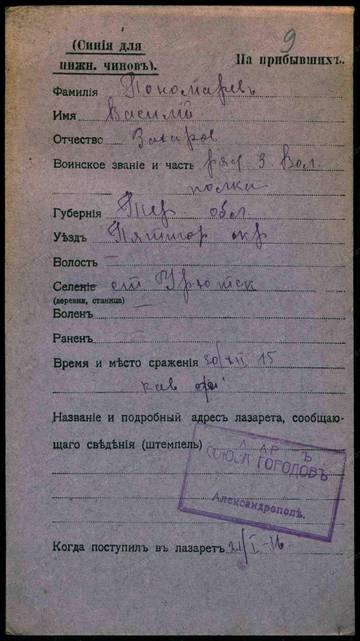 (Синія для
нижн. чиновъ).
9
На прибывшихъ.
Фамилія Пономаревъ
Имя Василій
Отчество Захаров
Воинское званіе и часть ряд 3 Вол.
полка
Губернія Тер обл
Уѣздъ Пятигор окр
Волость —
Селеніе ст
(деревня, станица) —
Боленъ
Раненъ
Время и мѣсто сраженія 30/XII 15
кав
Названіе и подробный адресъ лазарета, сообщаю-
щаго свѣдѣнія (штемпель)
СОЮЗА ГОРОДОВЪ
Александрополь.
Когда поступилъ въ лазаретъ 21/I-16